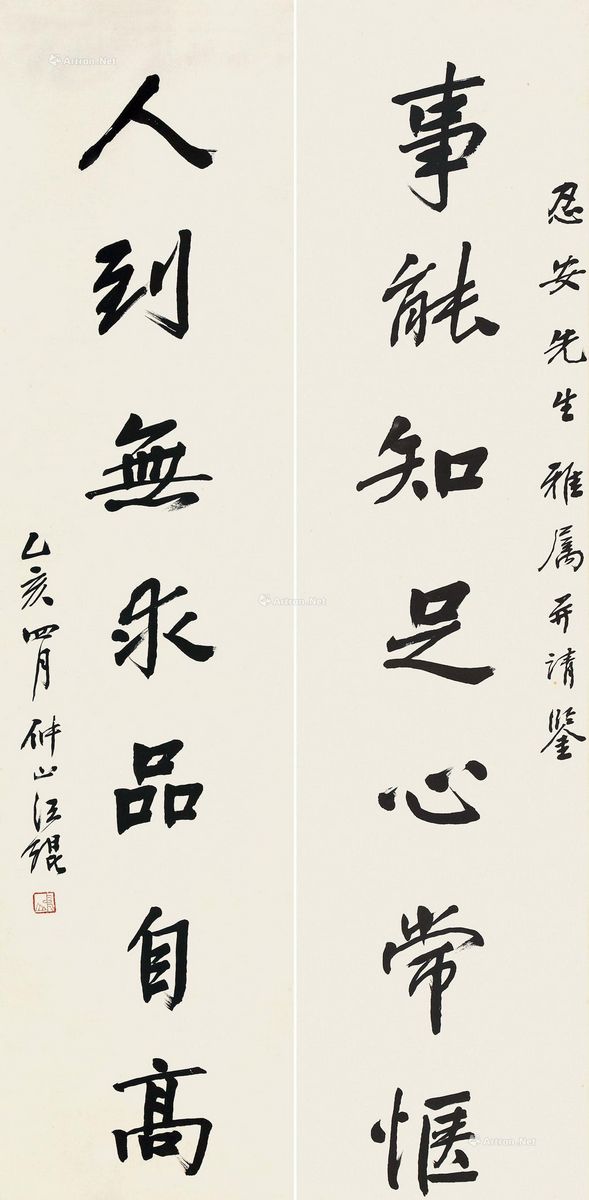 忍安先生雅属并請鑒
事能知足心常愜
人到無求品自高
乙亥四月仲山汪琨
Artron.Net
Artron.Net
Artron.Net